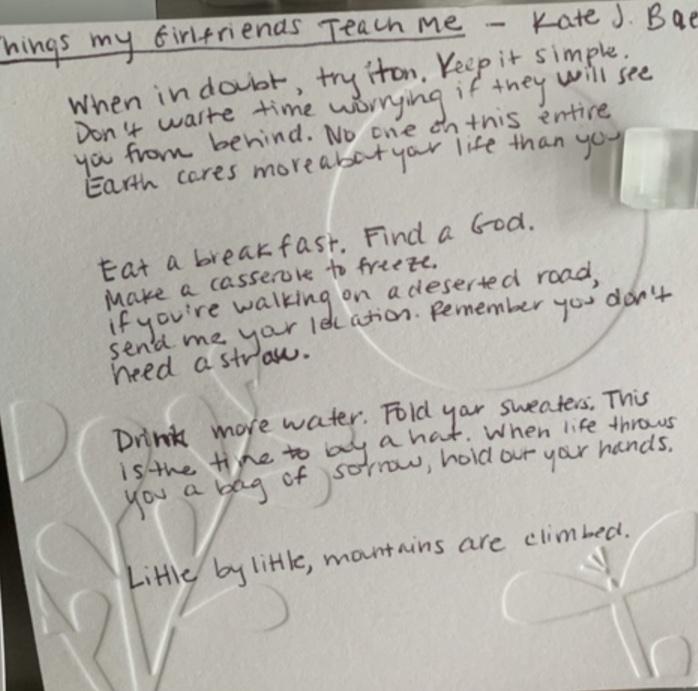 hings my Girlfriends Teach Me - Kate J. Bae
When in doubt, try it on. Keep it simple.
Don't waste time worrying if they will see
you from behind. No one on this entire
Earth cares more about your life than you
Eat a breakfast. Find a God.
Make a casserole to freeze.
if you're walking on a deserted road,
send me your location. Remember you don't
need a straw.
Drink more water. Fold your sweaters. This
is the time to buy a hat. When life throws
you a bag of sorrow, hold out your hands.
Little by little, mountains are climbed.